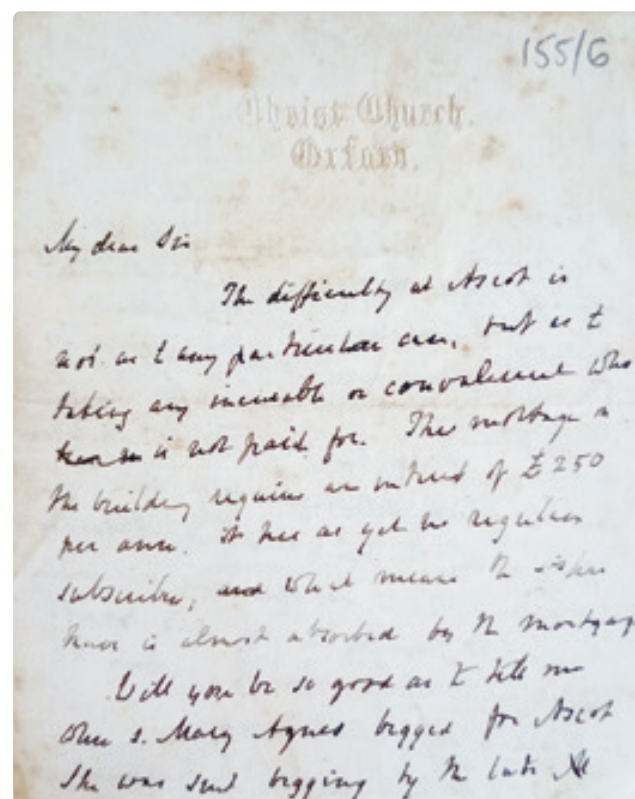 155/6
Christ Church.
Oxford.
My dear Sir
The difficulty at Ascot is
not as to any particular case, but as to
taking any incurable or convalescent who
is not paid for. The mortgage on
the building requires an interest of £250
per ann. It has as yet no regular
subscribers, and what means the sisters
have is almost absorbed by the mortgage
Will you be so good as to tell me
when S. Mary Agnes begged for Ascot
She was sent begging by the late